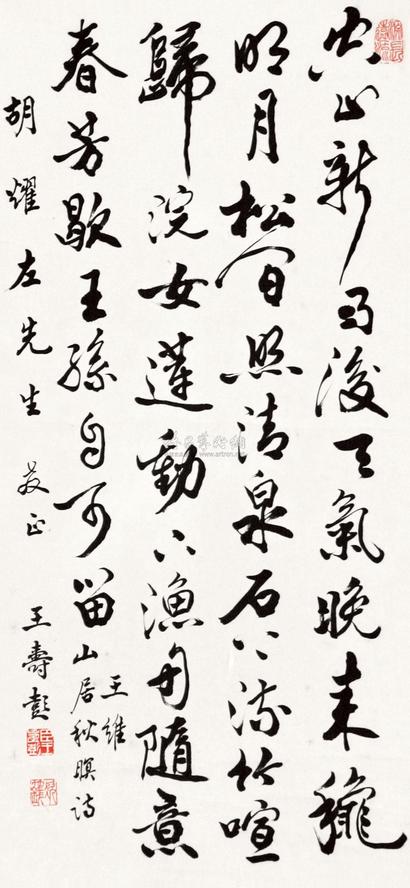 空山新雨後天氣晚來穐
明月松間照清泉石上流竹喧
歸浣女蓮動下漁舟隨意
春芳歇王孫自可留
王維
山居秋暝詩
胡耀左先生 教正 王壽彭